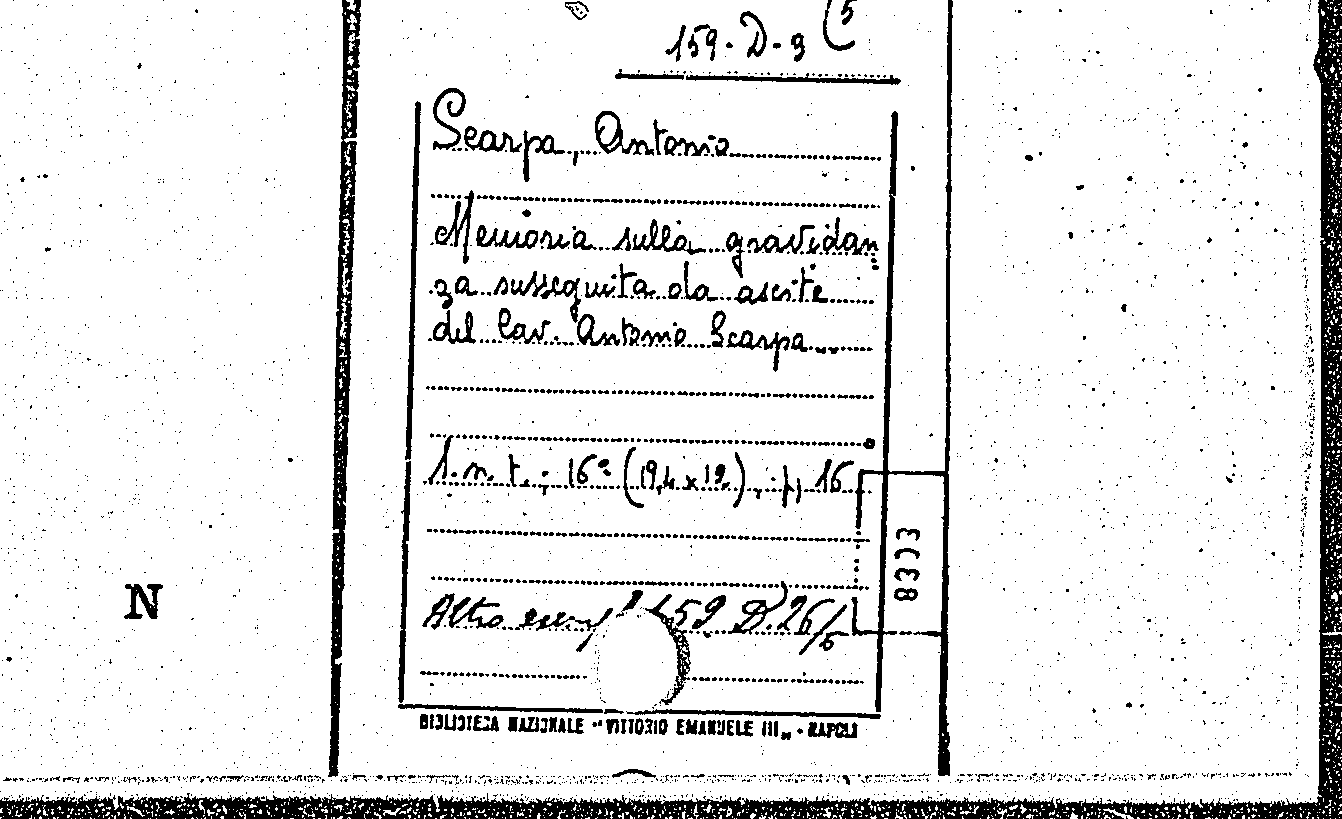 159-D-9 (5
Scarpa, Antonio
Memoria sulla gravidan
za susseguita da ascite
del Cav. Antonio Scarpa
S. n. t. ; 16° (19,4 x 12), p, 16
8338
N
Altro esemp 159 D.26/5
BIBLIOTECA NAZIONALE "VITTORIO EMANUELE III„ - NAPOLI